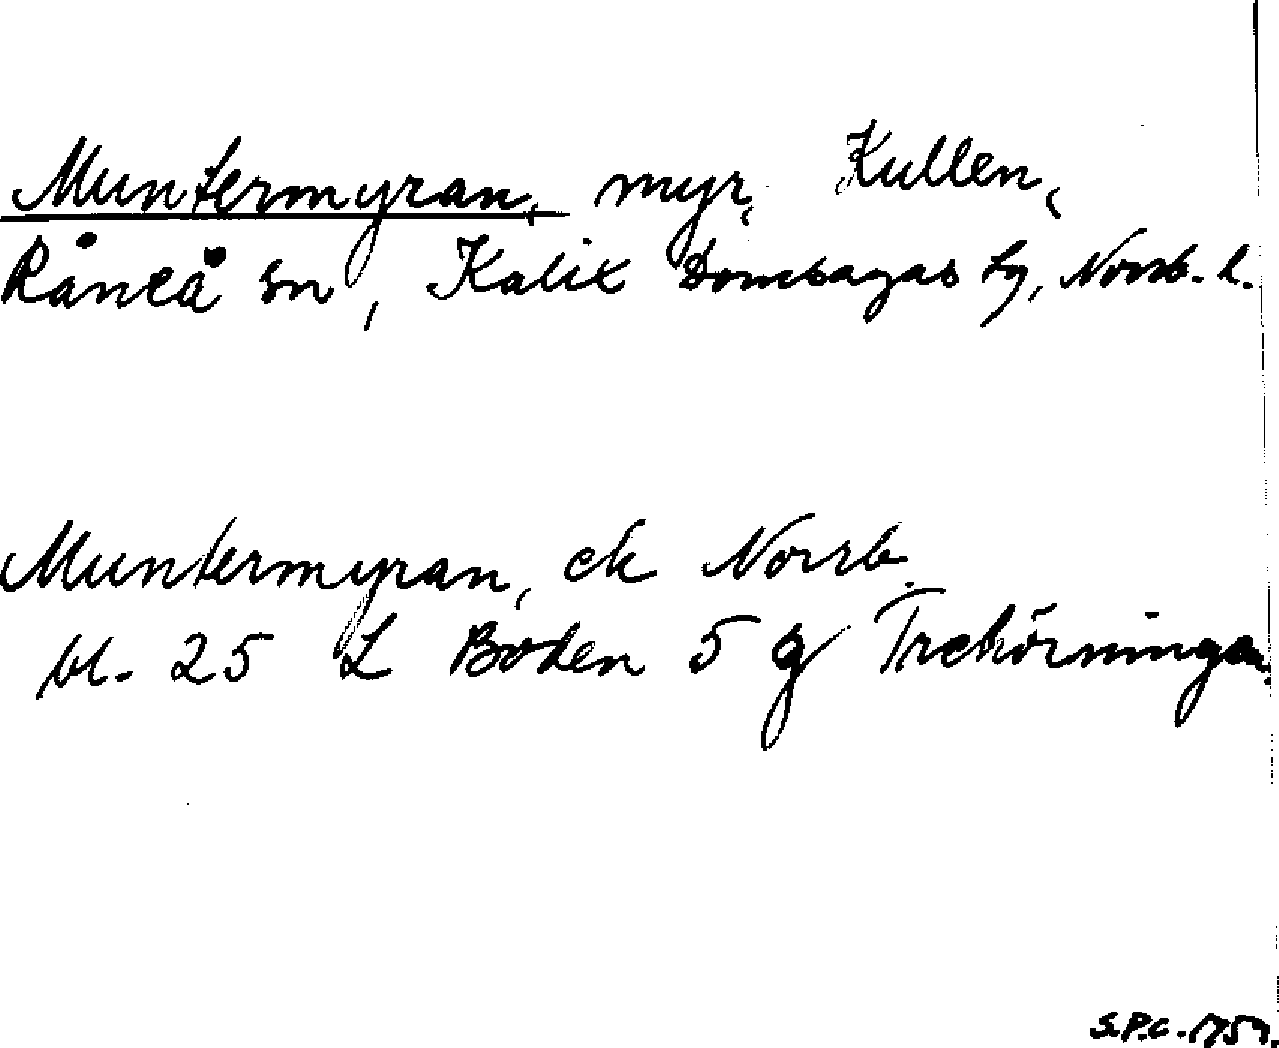 Muntermyran, myr, Kullen,
Råneå sn, Kalix Domsagas tg, Norrb. l.
Muntermyran, ek Norrb.
bl. 25 L Boden 5 g Trehörningen.
S.P.C. 1757.